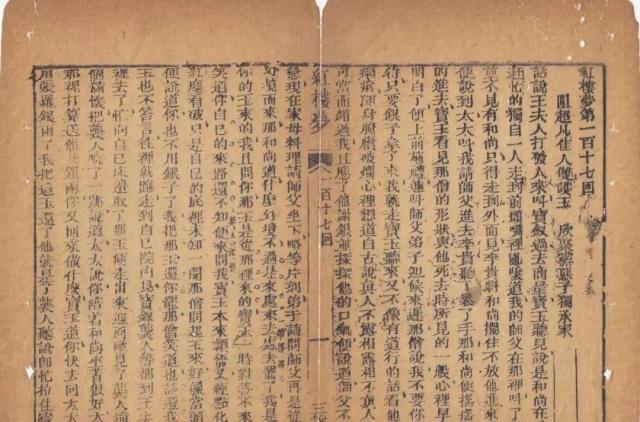 紅樓夢第一百十七回
阻超凡佳人雙護玉 欣聚黨惡子獨承家
話說王夫人打發人來叫寶釵過去商量寶玉聽見說是和尚在
赶忙的獨自一人走到前頭嘴裡亂嚷道我的師父在那裡叫了
並不見有和尚只得走到外面見李貴將和尚攔住不放他進來
便說道太太叫我請師父進去李貴聽了鬆了手那和尚便搖搖
的進去寶玉看見那僧的形狀與他死去時所見的一般心裡早
明白了便上前施禮連叫師父弟子迎候來遲那僧說我不要
待只要銀子拿了來我就走寶玉聽來又不像有道行的話看他
癩瘡渾身腌臢破爛心裡想道自古說真人不露相露相不真人
可當面錯過我且應了他謝銀並探探他的口氣便說道師父不
紅樓夢 一百十七回 一
急現在家母料理請師父坐下略等片刻弟子請問師父可是從
境而來那和尚道什麽幻境不過是來處來去處去罷了我是
你的玉來的我且問你那玉是從那裡來的寶玉一時對答不來
笑道你自己的來路還不知便來問我寶玉本來穎悟又經點化
紅塵看破只是自己的底裡未知一聞那僧問起玉來好像當頭
便說道你也不用銀子了我把那玉還你罷那僧笑道也該還我
玉也不答言往裡就跑走到自己院內見寶釵襲人等都到王夫
裡去了忙向自己床邊取了那玉便走出來迎面碰見了襲人撞
個滿懷把襲人唬了一跳說道太太說你陪着和尚坐着很好太
那裡打算送他些銀兩你又回來做什麽寶玉道你快去回太太
用張羅銀兩了我把這玉還了他就是了襲人聽說即忙拉住寶